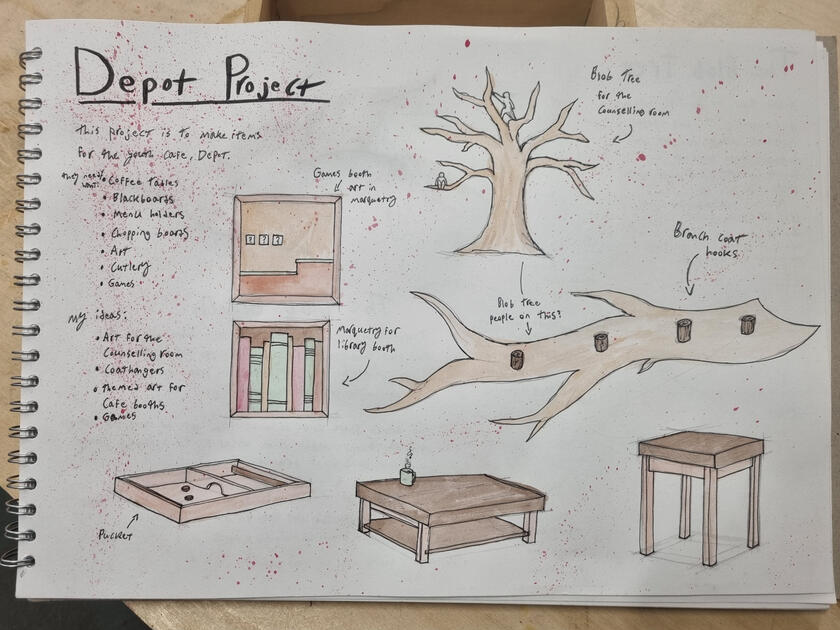 Depot Project
This project is to make items
for the youth cafe, Depot.
they need/
want:
• Coffee tables
• Blackboards
• Menu holders
• Chopping boards
• Art
• Cutlery
• Games
My ideas:
• Art for the
Counselling room
• Coathangers
• themed art for
Cafe booths
• Games
Games booth
art in
marquetry
? ? ?
Marquetry for
library booth
Blob Tree
for the
Counselling room
Branch coat
hooks
Blob tree
people on this?
Pucket